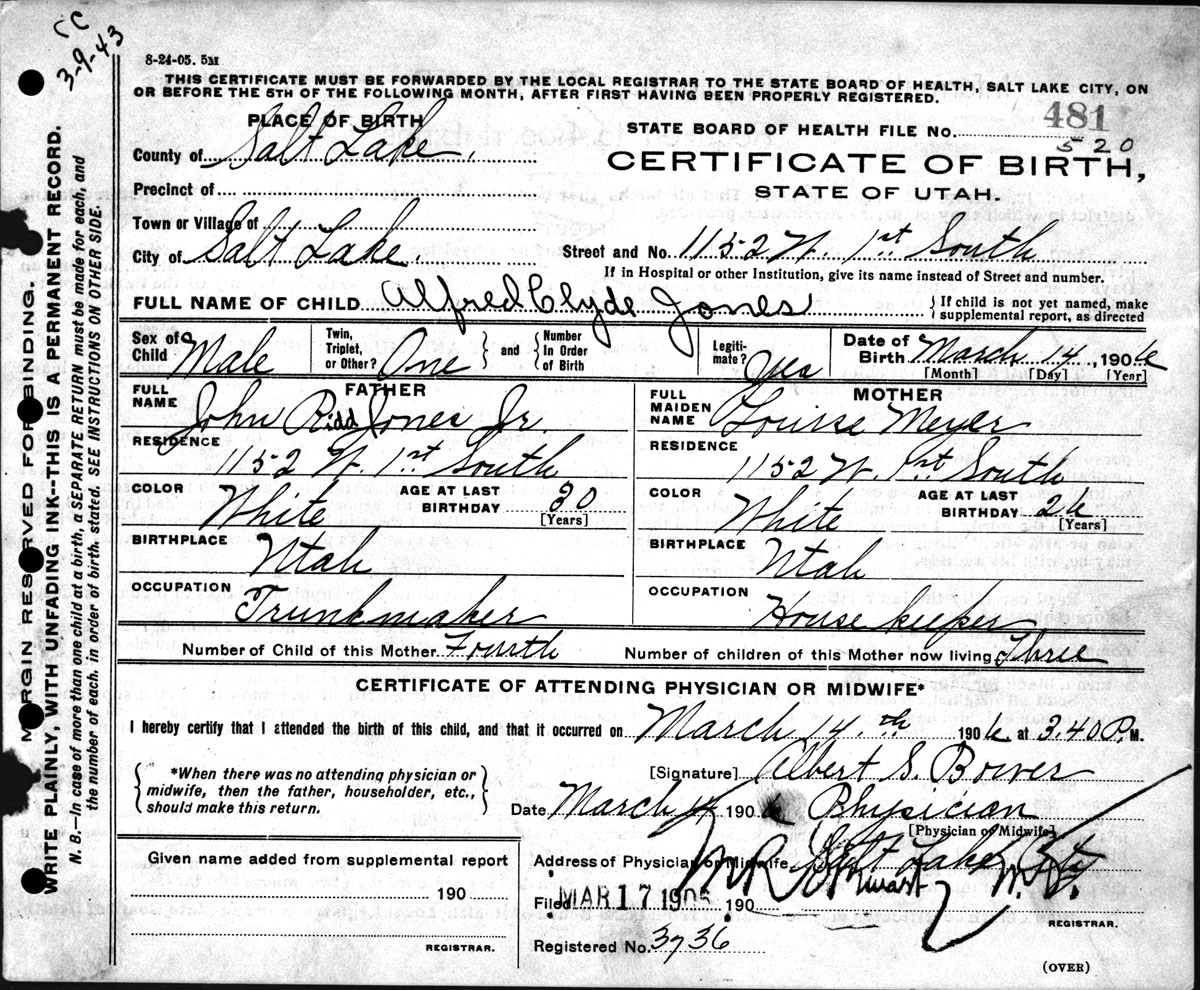 CC
3-9-43
8-24-05. 5M
THIS CERTIFICATE MUST BE FORWARDED BY THE LOCAL REGISTRAR TO THE STATE BOARD OF HEALTH, SALT LAKE CITY, ON
OR BEFORE THE 5TH OF THE FOLLOWING MONTH, AFTER FIRST HAVING BEEN PROPERLY REGISTERED.
PLACE OF BIRTH
STATE BOARD OF HEALTH FILE NO. 481
520
County of Salt Lake.
CERTIFICATE OF BIRTH,
STATE OF UTAH.
Precinct of
Town or Village of
City of Salt Lake. Street and No. 1152 W. 1st South
If in Hospital or other Institution, give its name instead of Street and number.
FULL NAME OF CHILD Alfred Clyde Jones { If child is not yet named, make
supplemental report, as directed
Sex of Child Male Twin, Triplet, or Other? One } and { Number In Order of Birth Legiti-mate? Yes Date of Birth March 14, 1906
[Month] [Day] [Year]
FATHER MOTHER
FULL NAME John Ridd Jones Jr. FULL MAIDEN NAME Louise Meyer
RESIDENCE 1152 W. 1st South RESIDENCE 1152 W. 1st South
COLOR White AGE AT LAST BIRTHDAY 30 [Years] COLOR White AGE AT LAST BIRTHDAY 26 [Years]
BIRTHPLACE Utah BIRTHPLACE Utah
OCCUPATION Trunkmaker OCCUPATION House keeper
Number of Child of this Mother Fourth Number of children of this Mother now living Three
CERTIFICATE OF ATTENDING PHYSICIAN OR MIDWIFE*
I hereby certify that I attended the birth of this child, and that it occurred on March 14th 1906 at 3.40 P.M.
{ *When there was no attending physician or
midwife, then the father, householder, etc.,
should make this return. }
[Signature] Albert S. Bower
Date March 14 1906 Physician
[Physician or Midwife]
Given name added from supplemental report
Address of Physician or Midwife Salt Lake City
190
Filed MAR 17 1906 190
REGISTRAR.
REGISTRAR.
Registered No. 3736
(OVER)
MARGIN RESERVED FOR BINDING.
WRITE PLAINLY, WITH UNFADING INK--THIS IS A PERMANENT RECORD.
N. B.--In case of more than one child at a birth, a SEPARATE RETURN must be made for each, and
the number of each, in order of birth, stated. SEE INSTRUCTIONS ON OTHER SIDE.